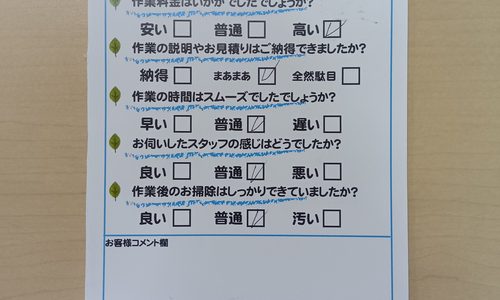 作業料金はいかがでしたでしょうか?
安い □ 普通 □ 高い ☑
作業の説明やお見積りはご納得できましたか?
納得 □ まあまあ ☑ 全然駄目 □
作業の時間はスムーズでしたでしょうか?
早い □ 普通 ☑ 遅い □
お伺いしたスタッフの感じはどうでしたか?
良い □ 普通 ☑ 悪い □
作業後のお掃除はしっかりできていましたか?
良い □ 普通 ☑ 汚い □
お客様コメント欄